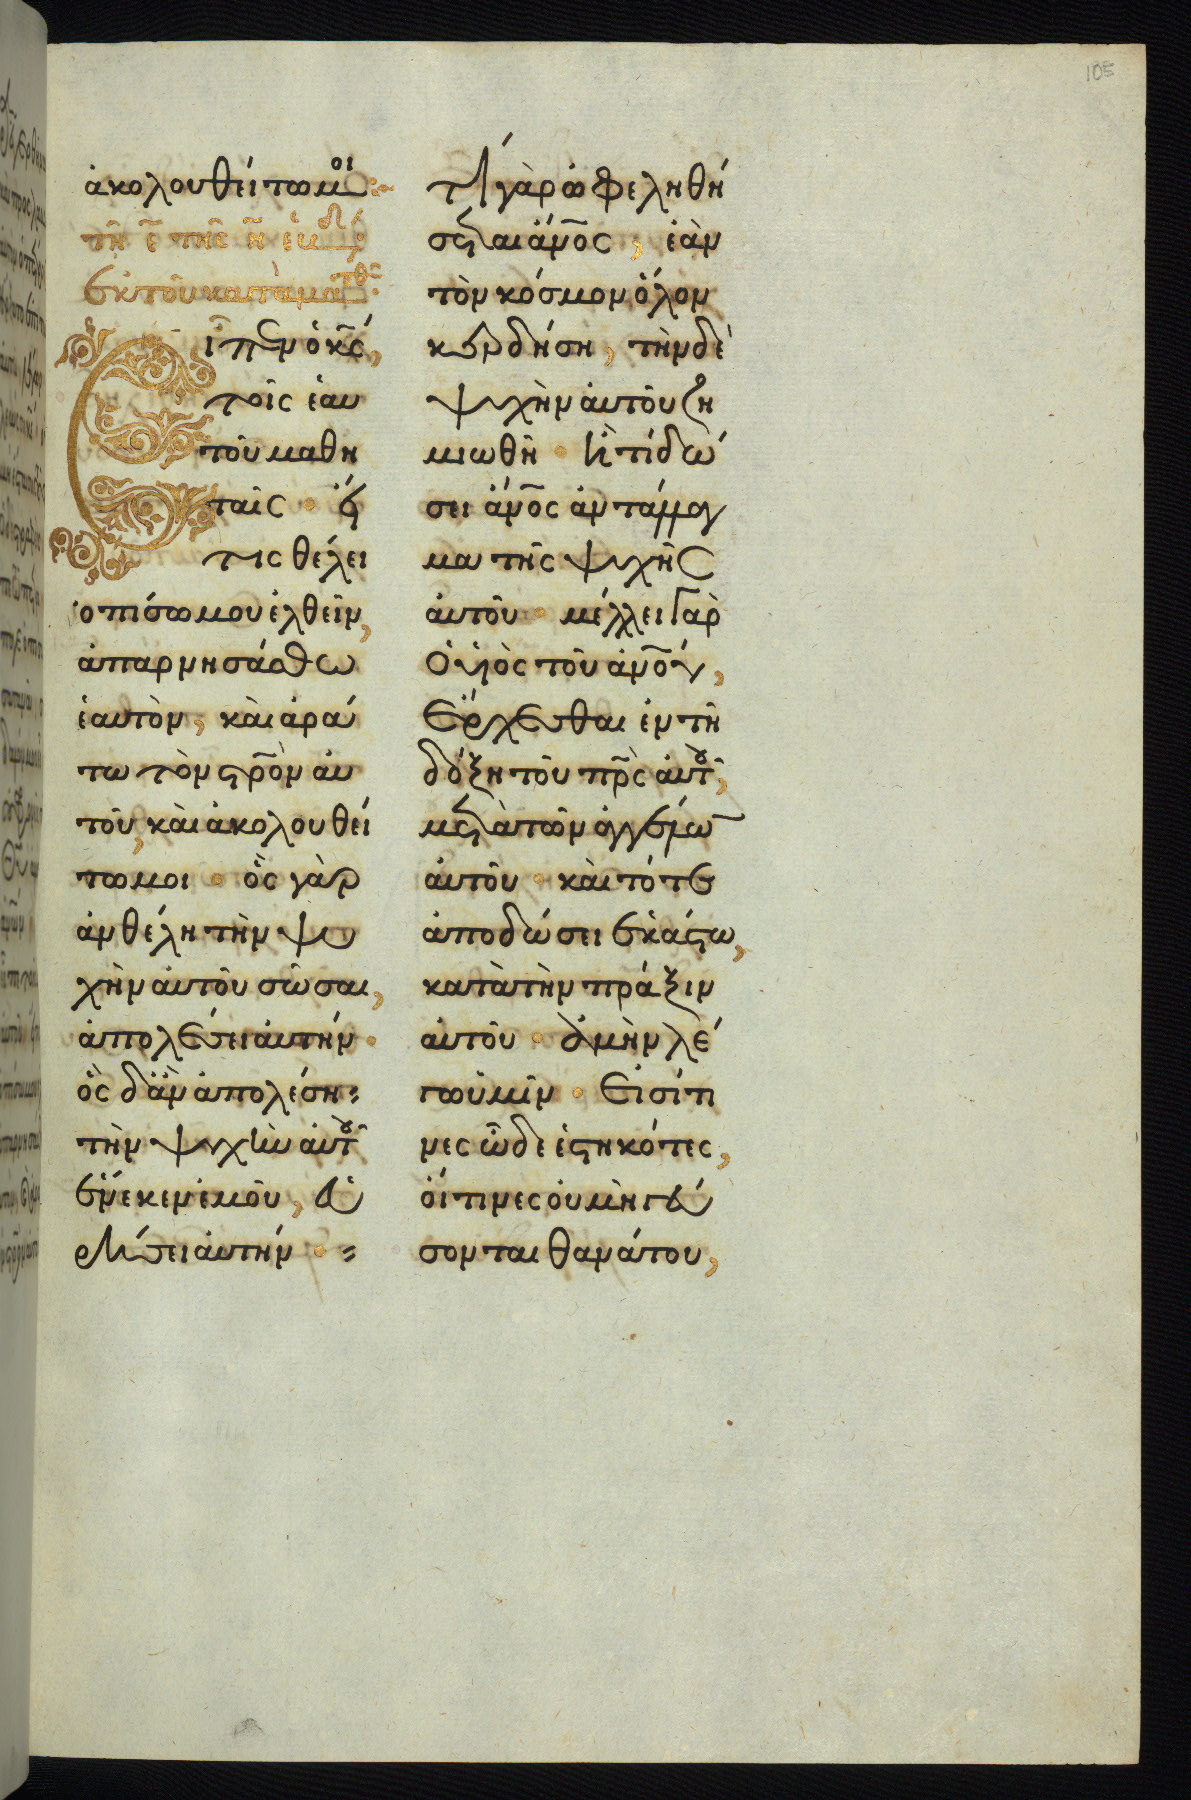 105
ἀκολουθείτω μοι
τῆ ε̄ τῆς η̄ ἑβδ
ἐκ τοῦ κατὰ ματθ
Εἶπεν ὁ κ̅ς̅,
τοῖς ἑαυ
τοῦ μαθη
ταῖς · ὅς
τις θέλει
ὀπίσω μου ἐλθεῖν,
ἀπαρνησάσθω
ἑαυτὸν, καὶ ἀρά
τω τὸν σ̅ρ̅ο̅ν αὐ
τοῦ, καὶ ἀκολουθεί
τω μοι · ὃς γὰρ
ἂν θέλη τὴν ψυ
χὴν αὐτοῦ σῶσαι,
ἀπολέσει αὐτήν ·
ὃς δ' ἂν ἀπολέση
τὴν ψυχὴν αὐτοῦ
ἕνεκεν ἐμοῦ, εὑ
ρήσει αὐτήν ·
Τί γὰρ ὠφεληθή
σεται ἄν̅ο̅ς, ἐὰν
τὸν κόσμον ὅλον
κερδήση, τὴν δὲ
ψυχὴν αὐτοῦ ζη
μιωθῆ · ἢ τί δώ
σει ἄν̅ο̅ς ἀντάλλαγ
μα τῆς ψυχῆς
αὐτοῦ · μέλλει γὰρ
ὁ υἱὸς τοῦ ἀν̅ο̅υ,
ἔρχεσθαι ἐν τῆ
δόξη τοῦ π̅ρ̅ς αὐτοῦ,
μετὰ τῶν ἀγγέλων
αὐτοῦ · καὶ τότε
ἀποδώσει ἑκάστω,
κατὰ τὴν πρᾶξιν
αὐτοῦ · ἀμὴν λέ
γω ὑμῖν · εἰσί τι
νες ὧδε ἑστηκότες,
οἵτινες οὐ μὴ γεύ
σονται θανάτου,